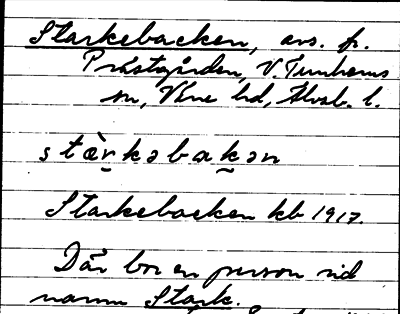 Starkebacken, avs. fr.
Prästgården, V. Tunhems
sn, Väne hd, Älvsb. l.
stærkəbakən
Starkebacken kb 1917.
Där bor en person vid
namn Stark.